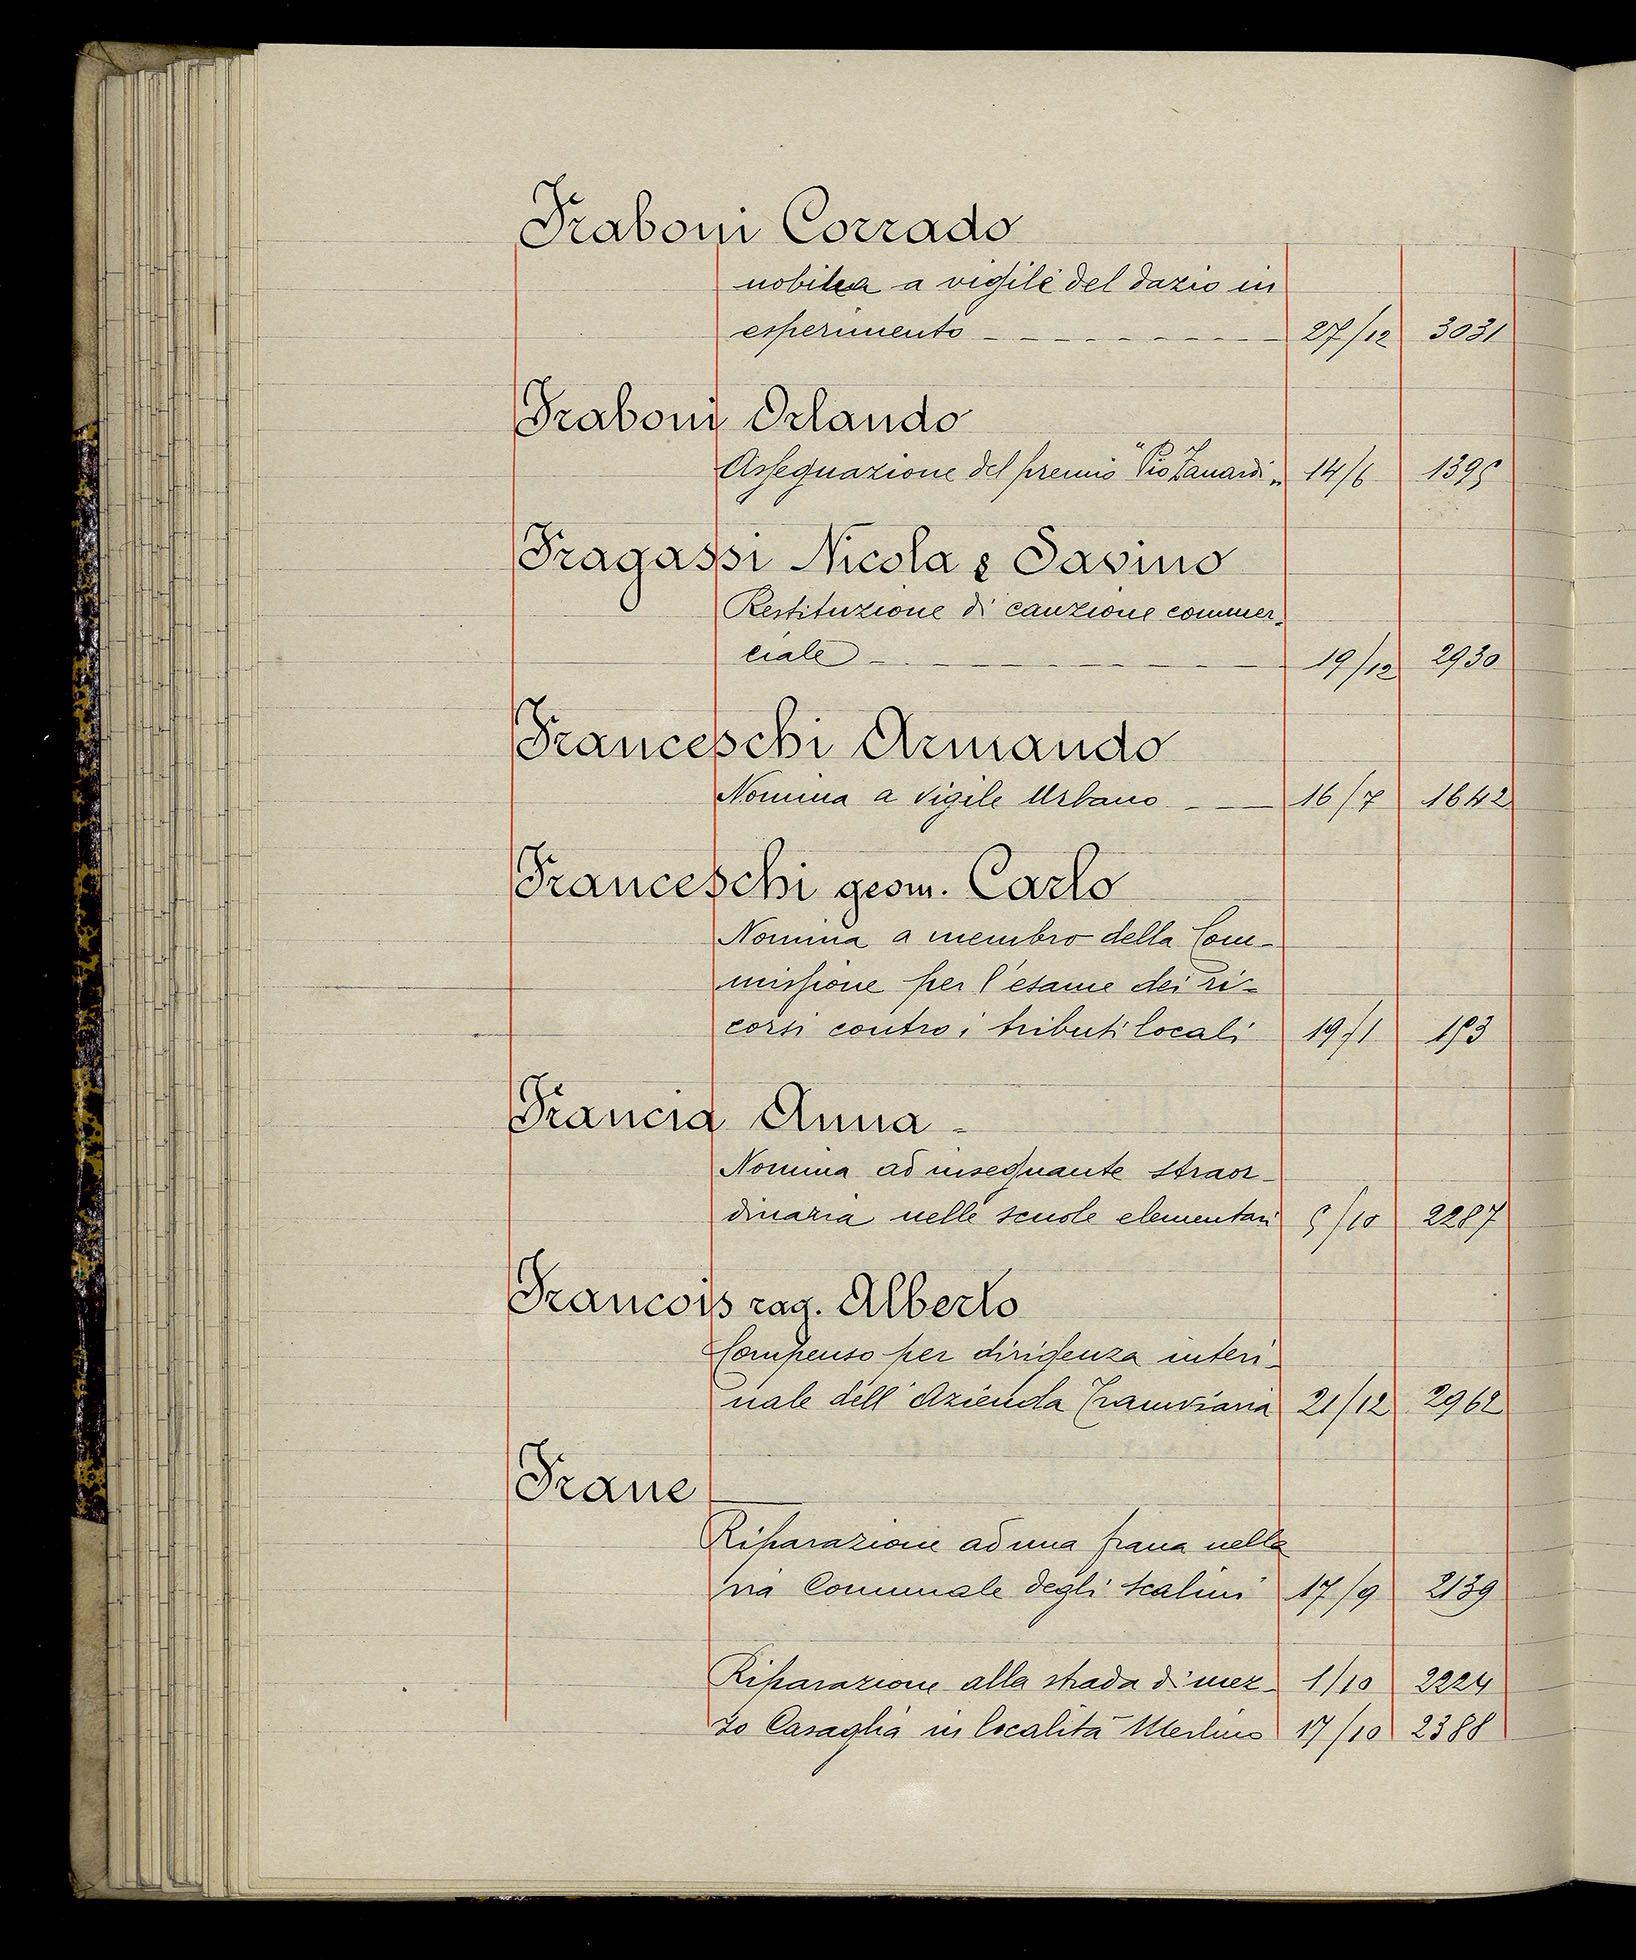 Fraboni Corrado
a vigile del dazio in
esperimento 27/12 3031
Fraboni Orlando
Assegnazione del premio "Pio Zanardi„ 14/6 1395
Fragassi Nicola e Savino
Restituzione di cauzione commer-
ciale 19/12 2930
Franceschi Armando
Nomina a Vigile Urbano 16/7 1642
Franceschi geom. Carlo
Nomina a membro della Com-
missione per l'esame dei ri-
corsi contro i tributi locali 19/1 153
Francia Anna
Nomina ad insegnante straor-
dinaria nelle scuole elementari 5/10 2287
Francois rag. Alberto
Compenso per dirigenza interi-
nale dell'Azienda Tramviaria 21/12 2962
Frane
Riparazione ad una frana nella
via Comunale degli scalini 17/9 2139
Riparazione alla strada di mez- 1/10 2224
zo Casaglia in località Merlino 17/10 2388